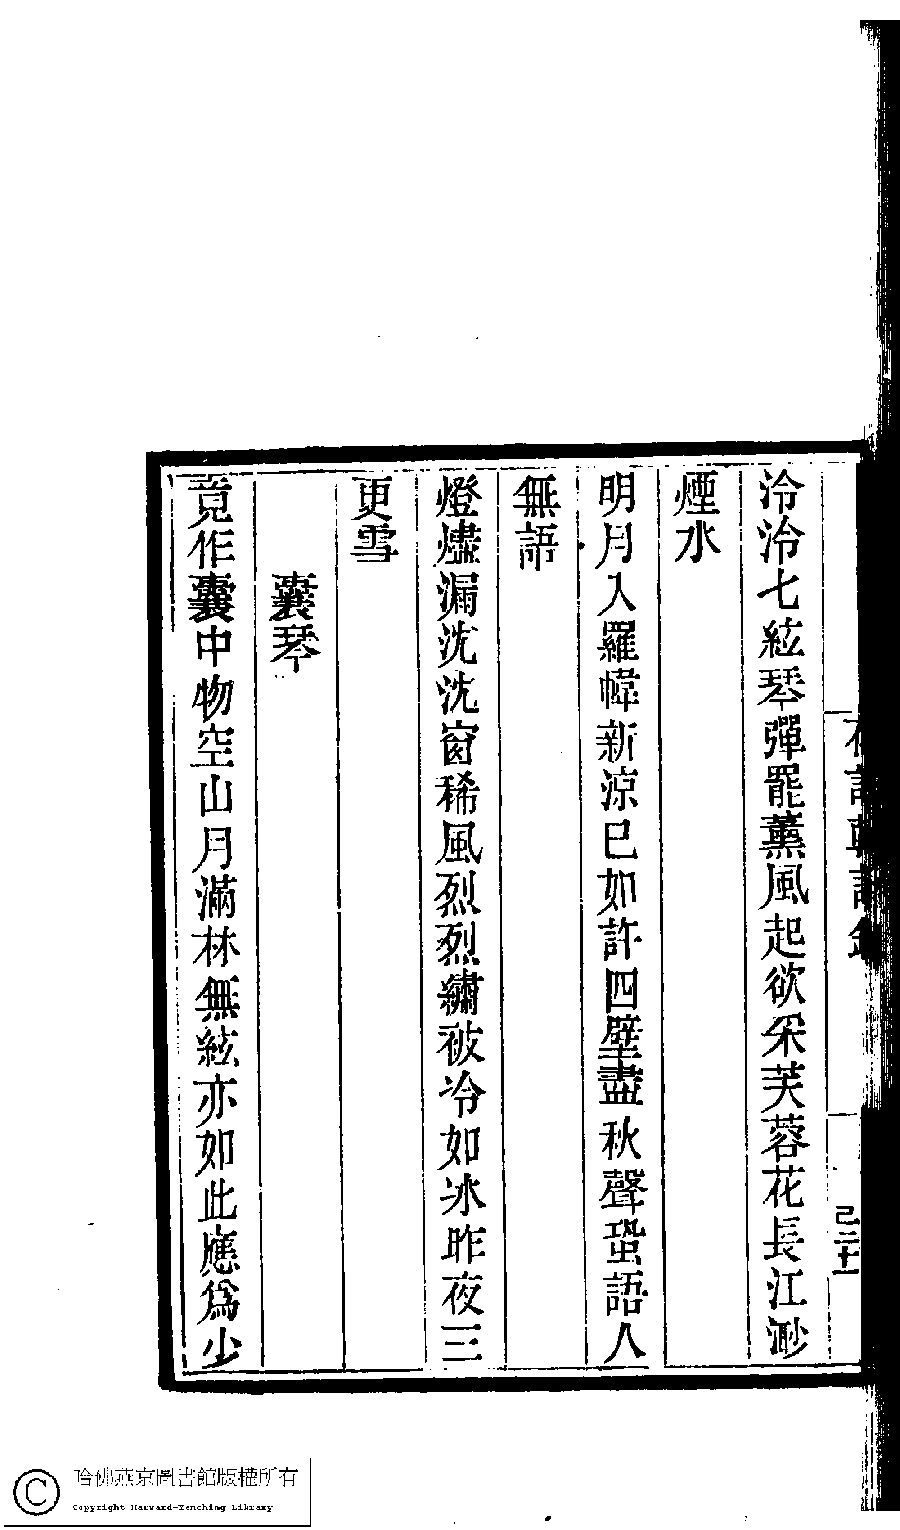 泠泠七絃琴彈罷薰風起欲采芙蓉花長江渺
煙水
明月入羅幃新涼已如許四壁盡秋聲蛩語人
無語
燈燼漏沈沈窗稀風烈烈繡被冷如冰昨夜三
更雪
囊琴
竟作囊中物空山月滿林無絃亦如此應爲少
己二十一
哈佛燕京圖書館版權所有
Copyright Harvard-Yenching Library